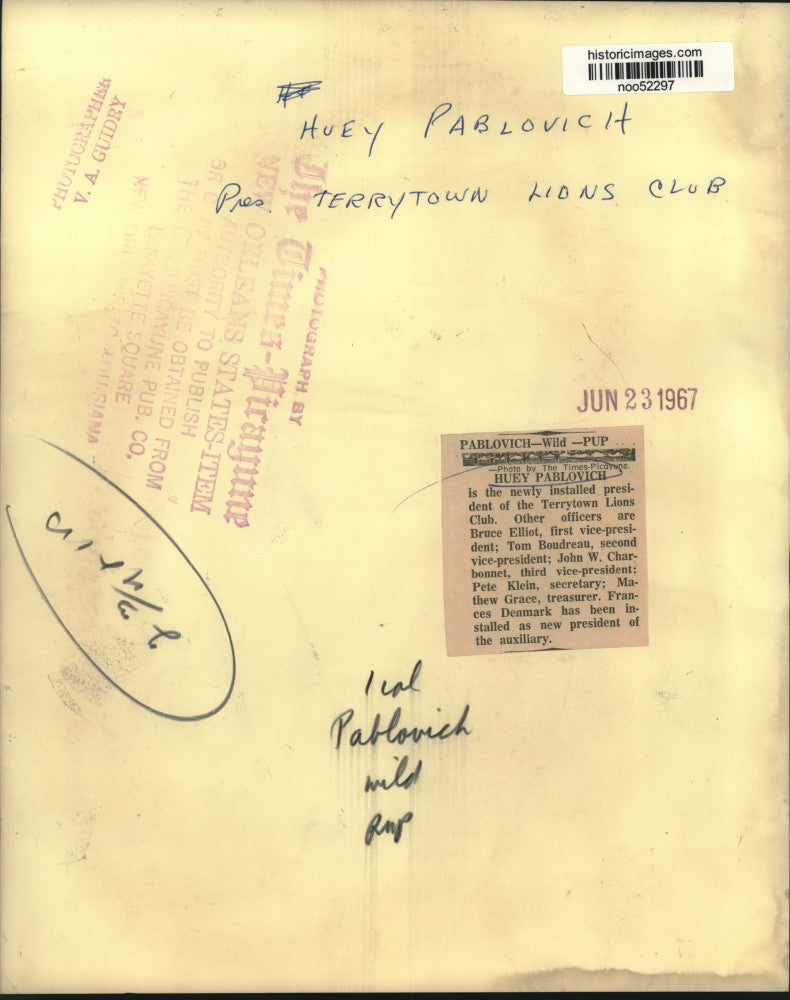 historicimages.com
noo52297
HUEY PABLOVICH
Pres. TERRYTOWN LIONS CLUB
PHOTOGRAPHER
V. A. GUIDRY
PHOTOGRAPH BY
The Times-Picayune
NEW ORLEANS STATES-ITEM
AUTHORITY TO PUBLISH
MUST BE OBTAINED FROM
THE TIMES PICAYUNE PUB. CO.
LAFAYETTE SQUARE
JUN 23 1967
PABLOVICH—Wild —PUP ....
—Photo by The Times-Picayune.
HUEY PABLOVICH
is the newly installed presi-
dent of the Terrytown Lions
Club. Other officers are
Bruce Elliot, first vice-presi-
dent; Tom Boudreau, second
vice-president; John W. Char-
bonnet, third vice-president;
Pete Klein, secretary; Ma-
thew Grace, treasurer. Fran-
ces Denmark has been in-
stalled as new president of
the auxiliary.
1 col
Pablovich
wild
pup